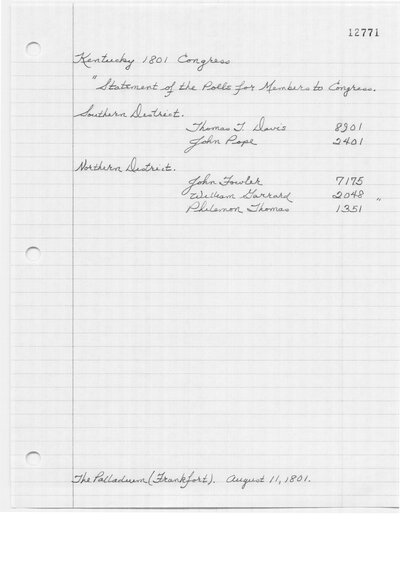 12771
Kentucky 1801 Congress
"Statement of the Polls for Members to Congress.
Southern District.
Thomas T. Davis 8901
John Pope 2401
Northern District.
John Fowler 7175
William Garrard 2048 "
Philemon Thomas 1351
The Palladium (Frankfort). August 11, 1801.